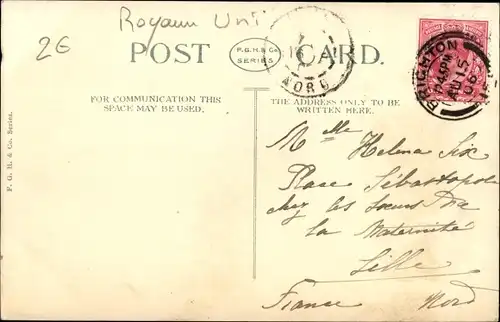 Royaum Uni
2€
POST CARD.
P.G.H. & Co.
SERIES
16
NORD
BRIGHTON
JU 15
06
FOR COMMUNICATION THIS
SPACE MAY BE USED.
THE ADDRESS ONLY TO BE
WRITTEN HERE.
P. G. H. & Co. Series.
Melle Helena Six
Place Sébastopole
chez les Soeurs De
la Maternité
Lille
France Nord